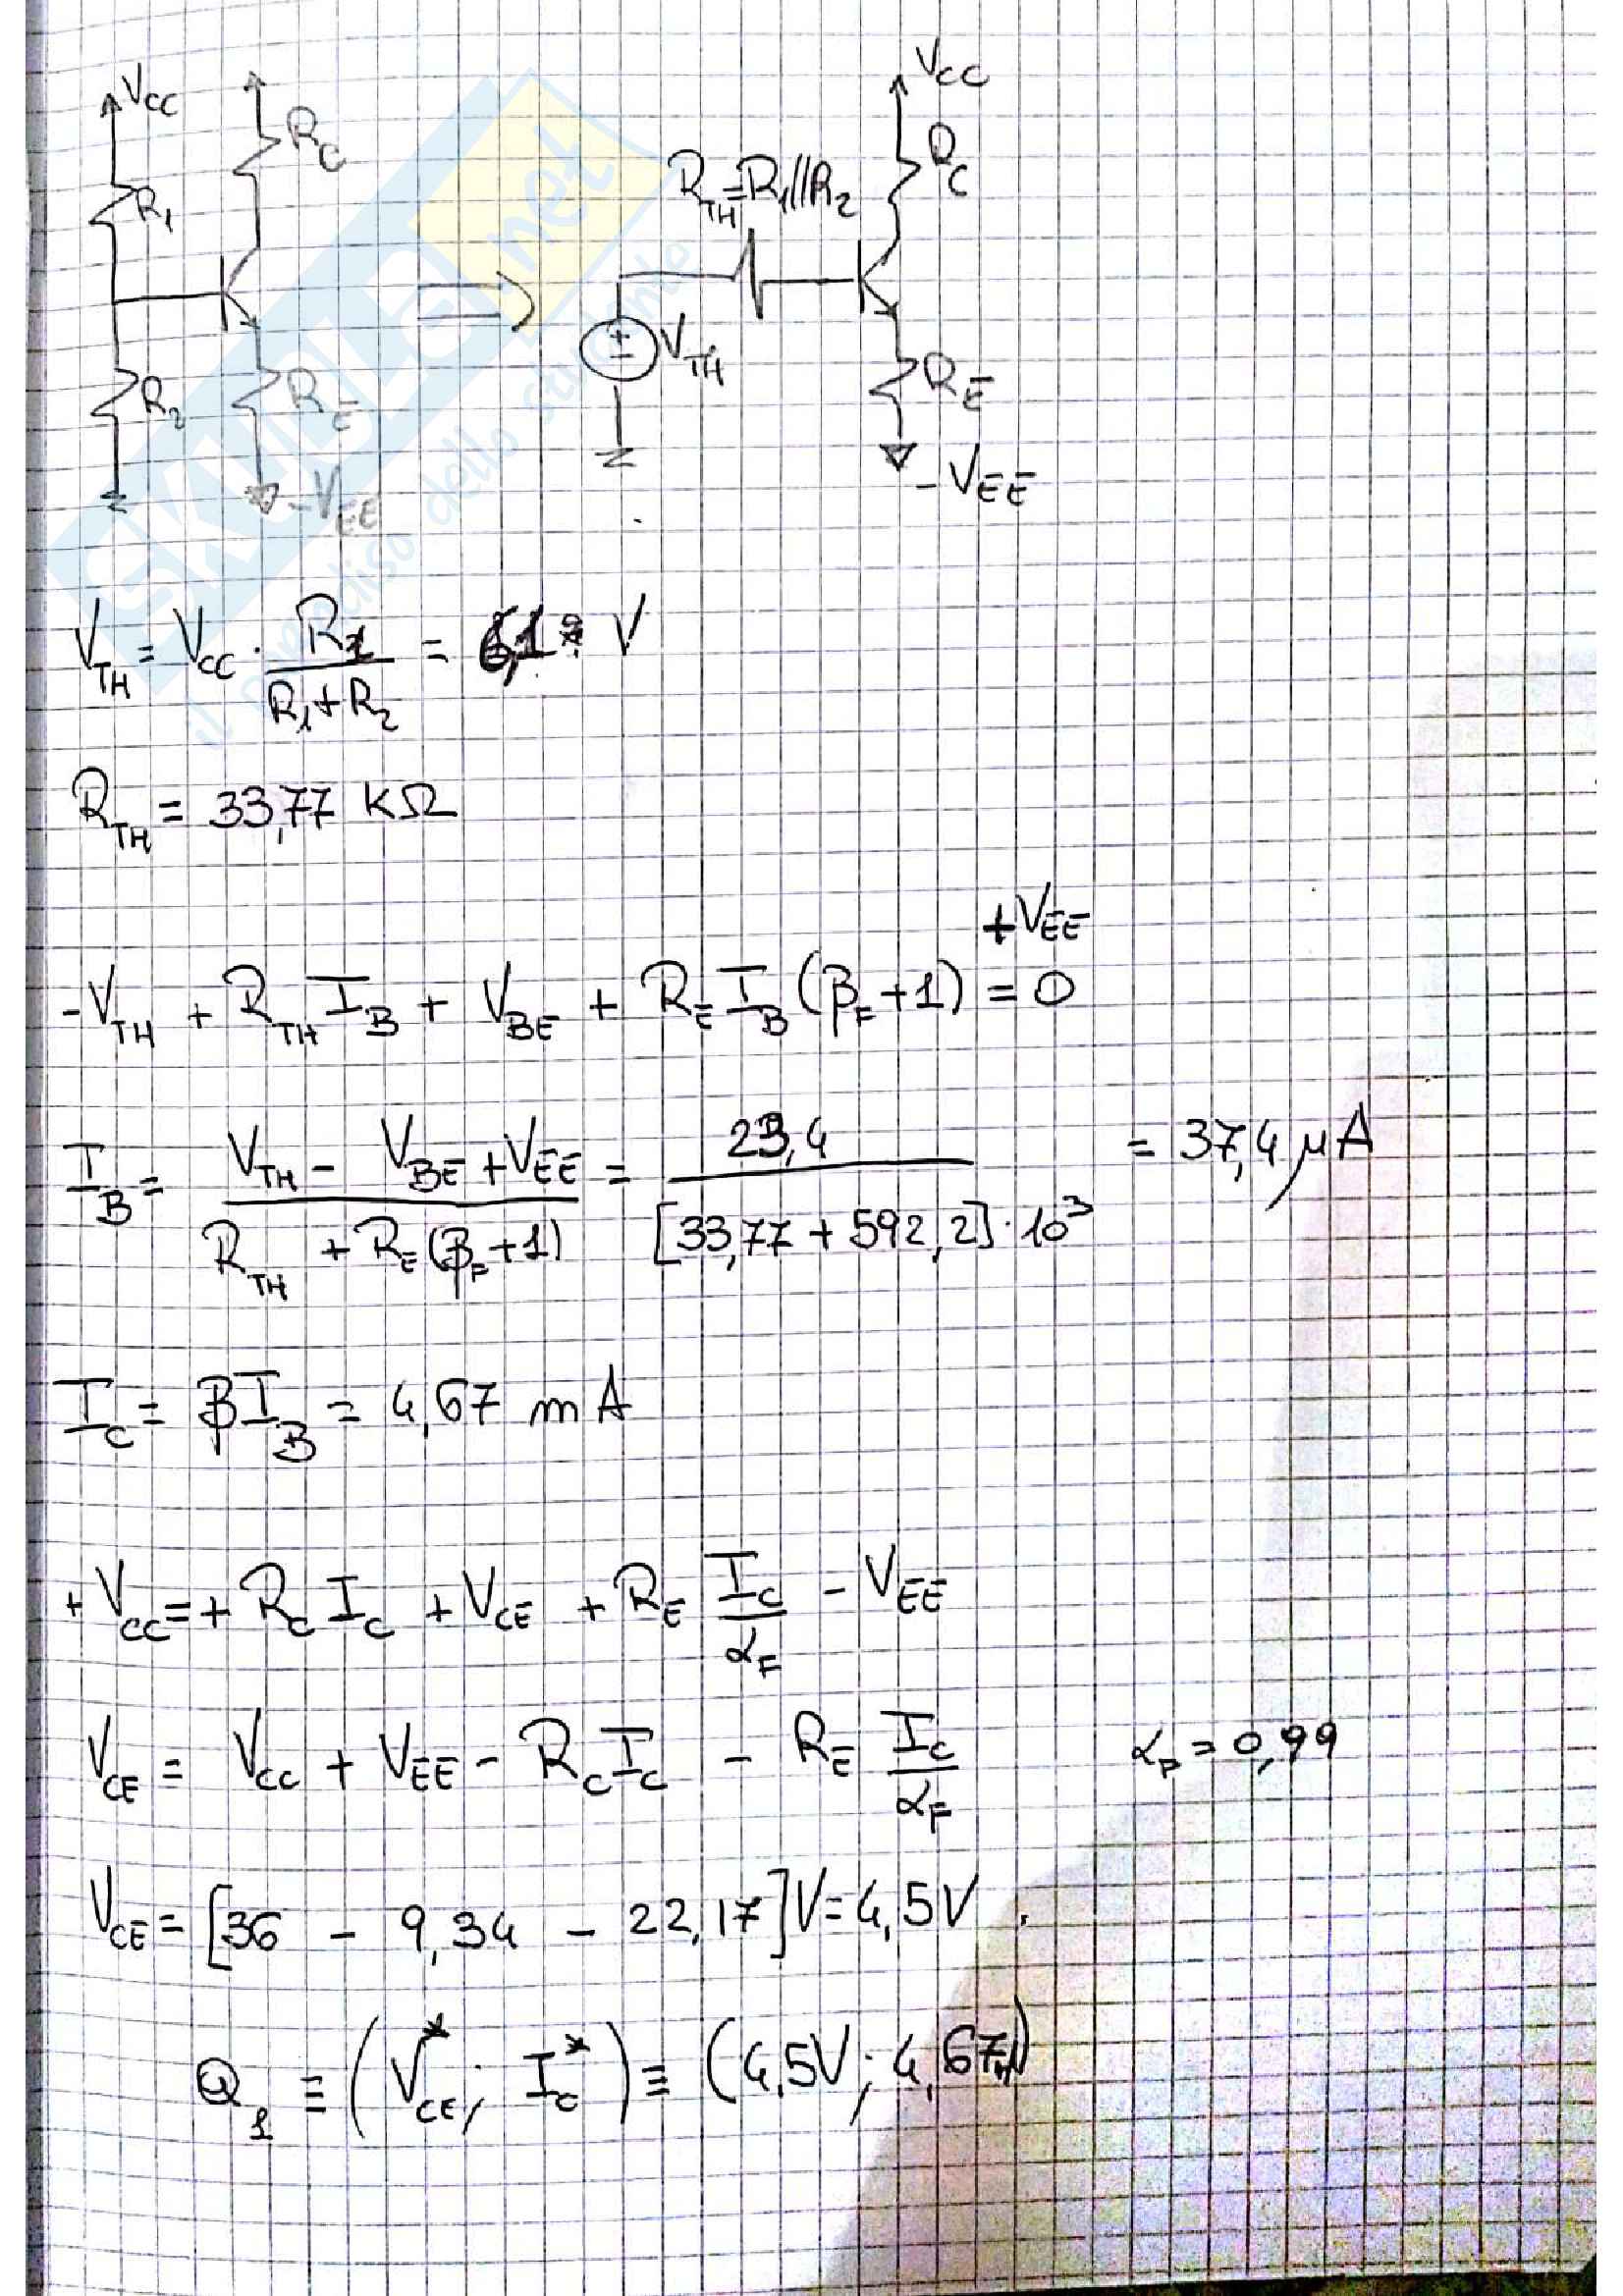 V_CC
R_C
R_1
R_2
R_E
-V_EE
V_CC
R_C
R_TH = R_1//R_2
V_TH
R_E
-V_EE
SKUOLA.net
il paradiso dello studente
V_TH = V_CC · R_2 / (R_1 + R_2) = 6,1 V
R_TH = 33,77 KΩ
-V_TH + R_TH I_B + V_BE + R_E I_B (β_F + 1) + V_EE = 0
I_B = (V_TH - V_BE + V_EE) / (R_TH + R_E (β_F + 1)) = 23,4 / ([33,77 + 592,2] · 10^3) = 37,4 μA
I_C = βI_B = 4,67 mA
+ V_CC = + R_C I_C + V_CE + R_E I_C / α_F - V_EE
V_CE = V_CC + V_EE - R_C I_C - R_E I_C / α_F α_F = 0,99
V_CE = [36 - 9,34 - 22,17] V = 4,5 V
Q_1 ≡ (V_CE^*; I_C^*) ≡ (4,5V; 4,67